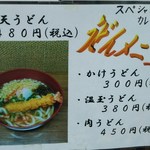 天うどん
480円(税込)
スペシ
カレ
うどんメニ
・かけうどん
300円(税
・温玉うどん
380円(税
・肉うどん
450円(税